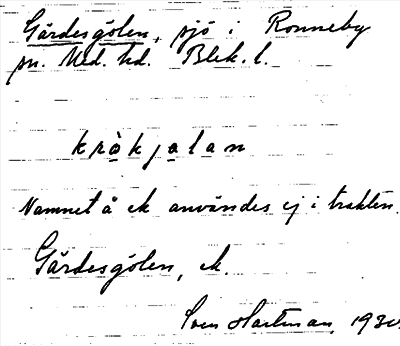 Gärdesgölen, sjö i Ronneby
sn. Med. hd. Blek. l.
kràkjalan
Namnet å ek användes ej i trakten.
Gärdesgölen, ek.
Sven Hartman, 1930